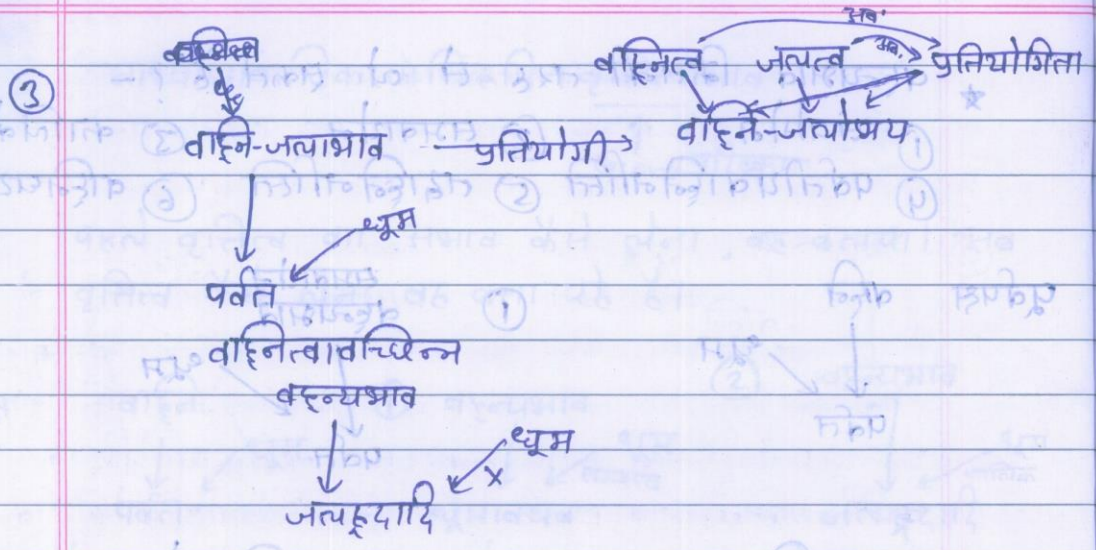 अव.
वह्नित्व जलत्व अव. प्रतियोगिता
③
वह्नि-जलाभाव प्रतियोगी वह्नि-जलोभय
धूम
पर्वत
वह्नित्वावच्छिन्न
वह्न्यभाव
धूम
×
जलह्रदादि